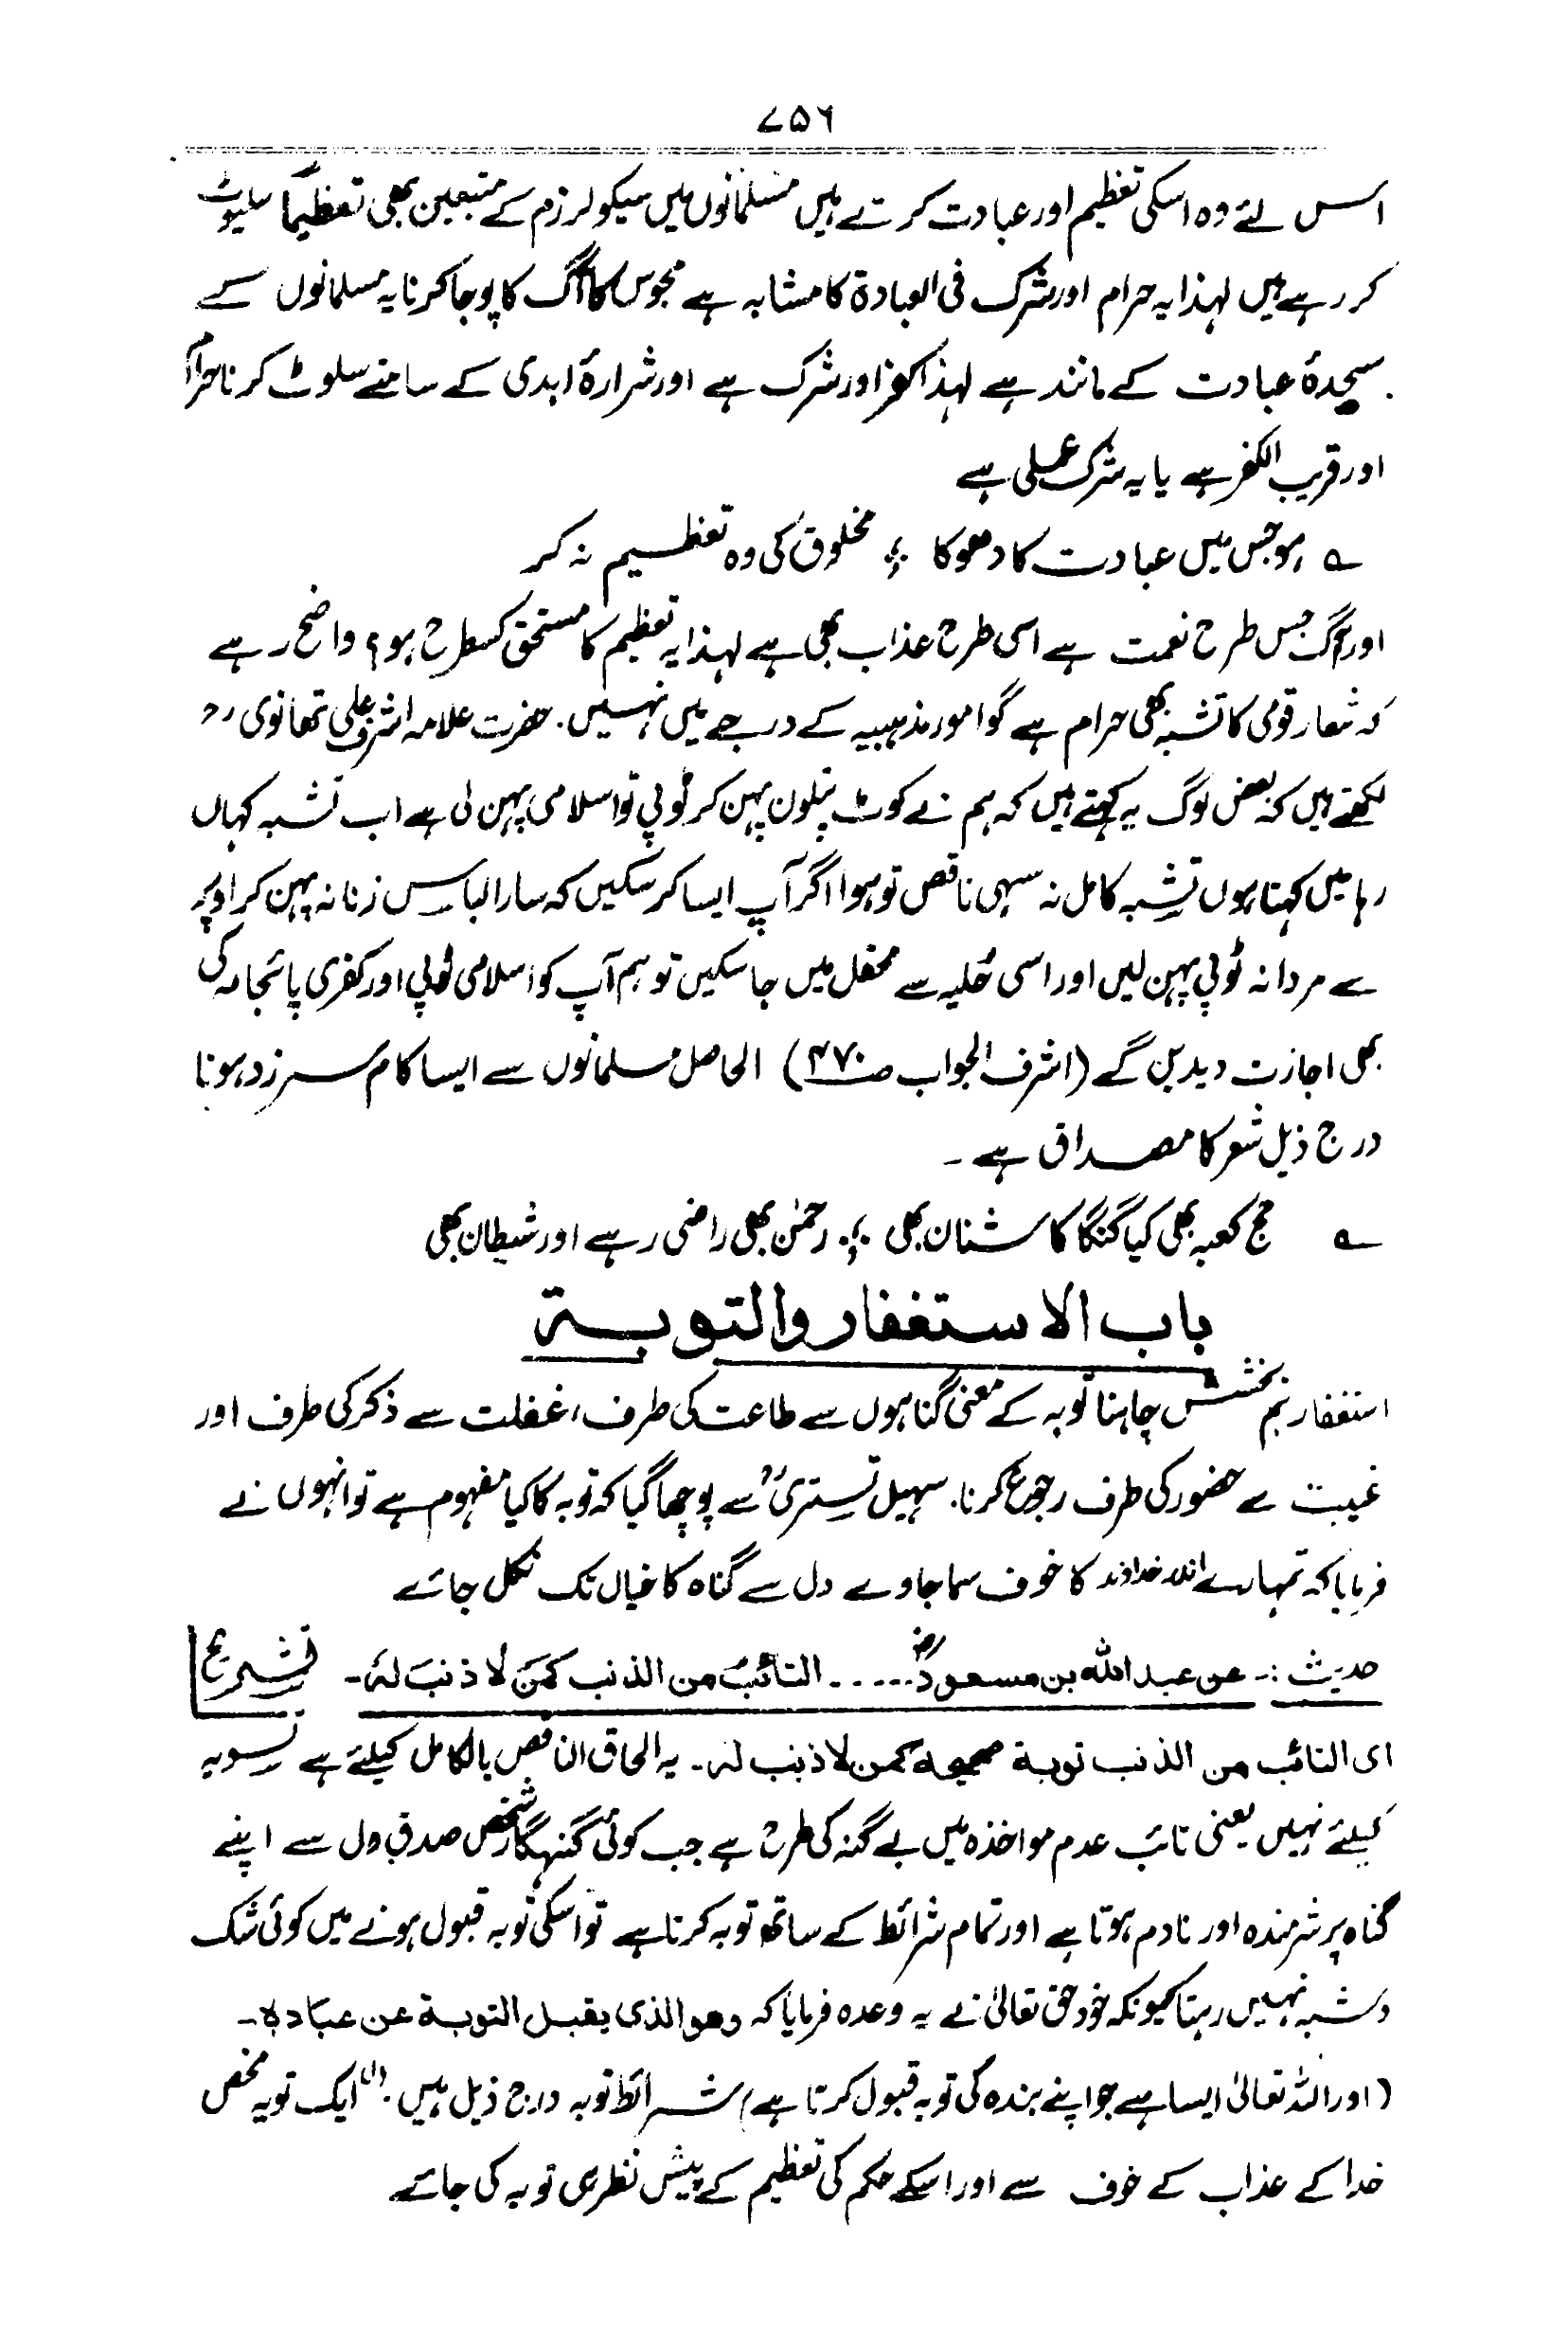 ۷۵۶
اس لئے وہ اسکی تعظیم اور عبادت کرتے ہیں مسلمانوں میں سیکولرزم کے متبعین بھی تعظیماً سلیوٹ
کر رہے ہیں لہذا یہ حرام اور شرک فی العبادۃ کا مشابہ ہے مجوس کا آگ کا پوجا کرنا یہ مسلمانوں کے
سجدۂ عبادت کے مانند ہے لہذا کفر اور شرک ہے اور شرارۂ ابدی کے سامنے سلوٹ کرنا حرام
اور قریب الکفر ہے یا یہ شرک عملی ہے
؎ ہو جس میں عبادت کا دھوکا ؛ مخلوق کی وہ تعظیم نہ کر
اور آگ جس طرح نعمت ہے اسی طرح عذاب بھی ہے لہذا یہ تعظیم کا مستحق کسطرح ہو؟ واضح رہے
کہ شعار قومی کا تشبہ بھی حرام ہے گو امور مذہبیہ کے درجے میں نہیں۔ حضرت علامہ اشرف علی تھانوی رح
لکھتے ہیں کہ بعض لوگ یہ کہتے ہیں کہ ہم نے کوٹ پتلون پہن کر ٹوپی تو اسلامی پہن لی ہے اب تشبہ کہاں
رہا میں کہتا ہوں تشبہ کامل نہ سہی ناقص تو ہوا اگر آپ ایسا کر سکیں کہ سارا لباس زنانہ پہن کر اوپر
سے مردانہ ٹوپی پہن لیں اور اسی حُلیہ سے محفل میں جا سکیں تو ہم آپ کو اسلامی ٹوپی اور کفری پائجامہ کی
بھی اجازت دیدیں گے (اشرف الجواب صـ۴۷۰) الحاصل مسلمانوں سے ایسا کام سرزد ہونا
درج ذیل شعر کا مصداق ہے ۔
؎ حج کعبہ بھی کیا گنگا کا اشنان بھی ؛ رحمٰن بھی راضی رہے اور شیطان بھی
باب الاستغفار والتوبة
استغفار بم بخشش چاہنا توبہ کے معنی گناہوں سے طاعت کی طرف، غفلت سے ذکر کی طرف اور
غیبت سے حضور کی طرف رجوع کرنا۔ سہیل تستریؒ سے پوچھا گیا کہ توبہ کا کیا مفہوم ہے تو انہوں نے
فرمایا کہ تمہارے اندر خداوند کا خوف سما جاوے دل سے گناہ کا خیال تک نکل جائے
حدیث :۔ عن عبد اللہ بن مسعودؓ ..... التائبُ من الذنب کمَن لا ذنبَ لہٗ۔ تشریح
ای التائب من الذنب توبة صحیحة کمن لا ذنب لہ۔ یہ الحاق الناقص بالکامل کیلئے ہے تسویہ
کیلئے نہیں یعنی تائب عدم مواخذہ میں بے گنہ کی طرح ہے جب کوئی گنہگار شخص صدقِ دل سے اپنے
گناہ پر شرمندہ اور نادم ہوتا ہے اور تمام شرائط کے ساتھ توبہ کرتا ہے تو اسکی توبہ قبول ہونے میں کوئی شک
و شبہ نہیں رہتا کیونکہ خود حق تعالیٰ نے یہ وعدہ فرمایا کہ وھو الذی یقبل التوبة عن عبادہ۔
(اور اللہ تعالیٰ ایسا ہے جو اپنے بندہ کی توبہ قبول کرتا ہے) شرائط توبہ درج ذیل ہیں۔ (۱) ایک توبہ محض
خدا کے عذاب کے خوف سے اور اسکے حکم کی تعظیم کے پیش نظر ہی توبہ کی جائے